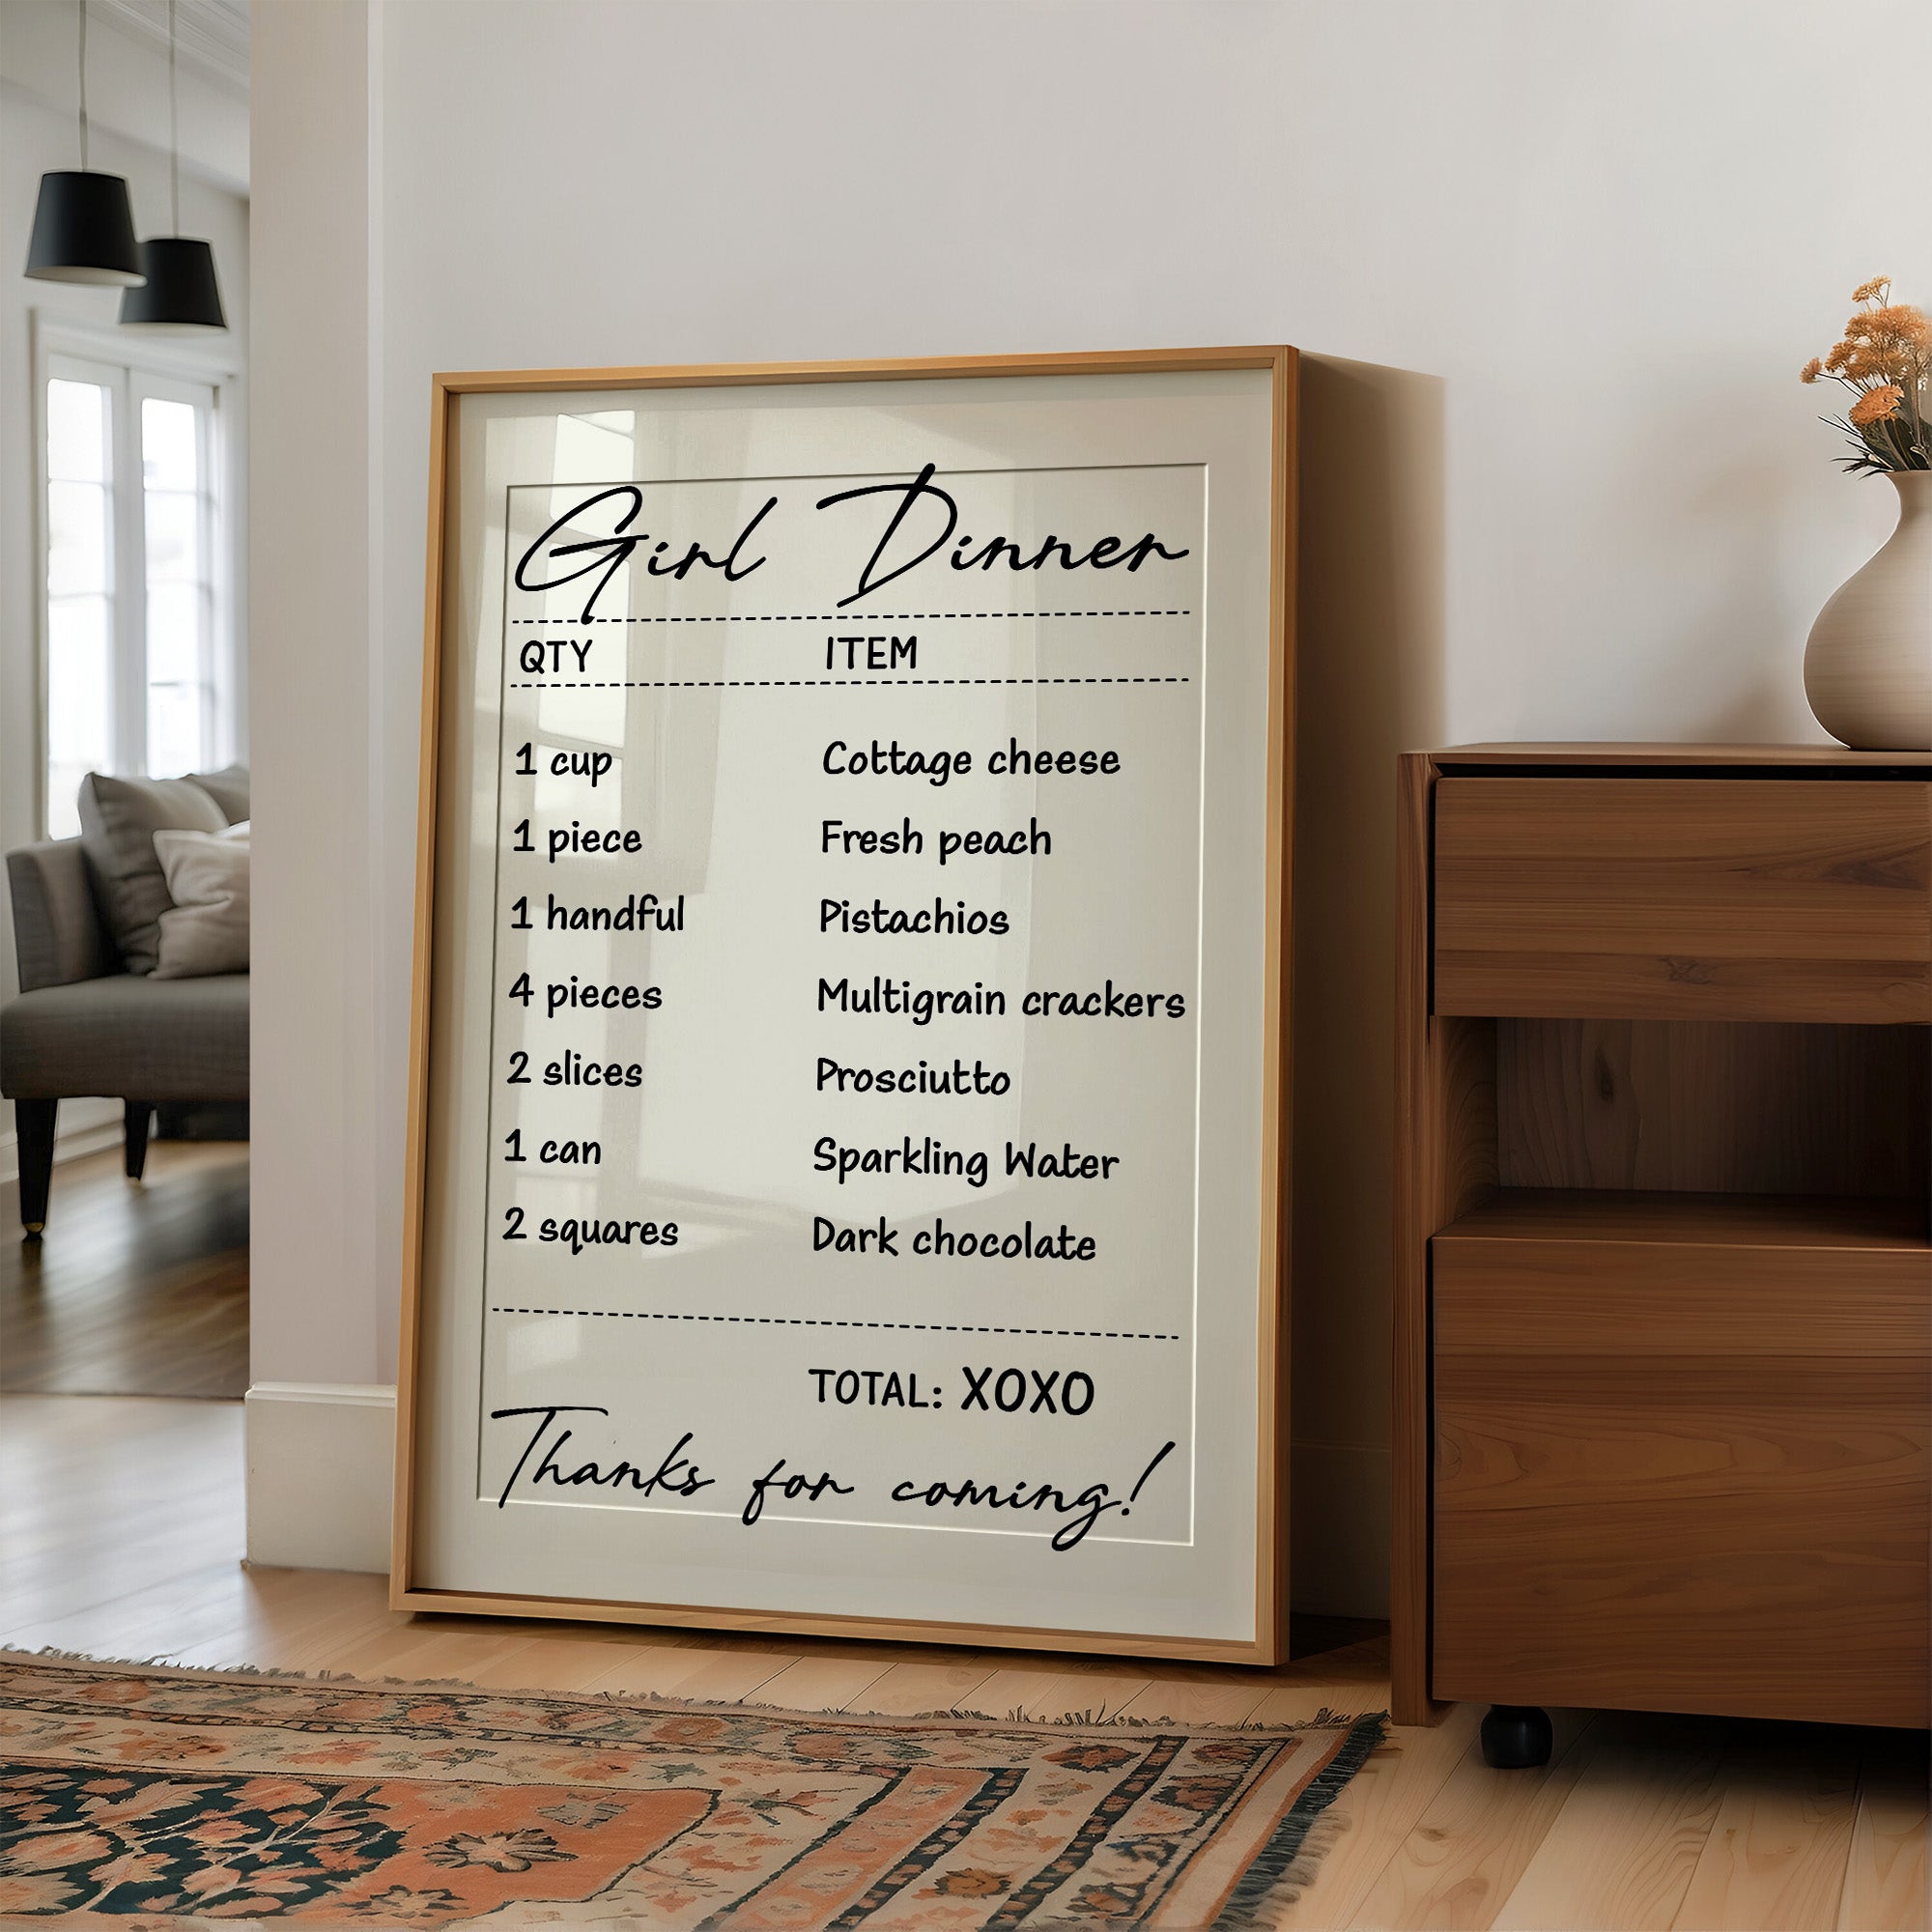 Girl Dinner
QTY ITEM
1 cup Cottage cheese
1 piece Fresh peach
1 handful Pistachios
4 pieces Multigrain crackers
2 slices Prosciutto
1 can Sparkling Water
2 squares Dark chocolate
TOTAL: XOXO
Thanks for coming!